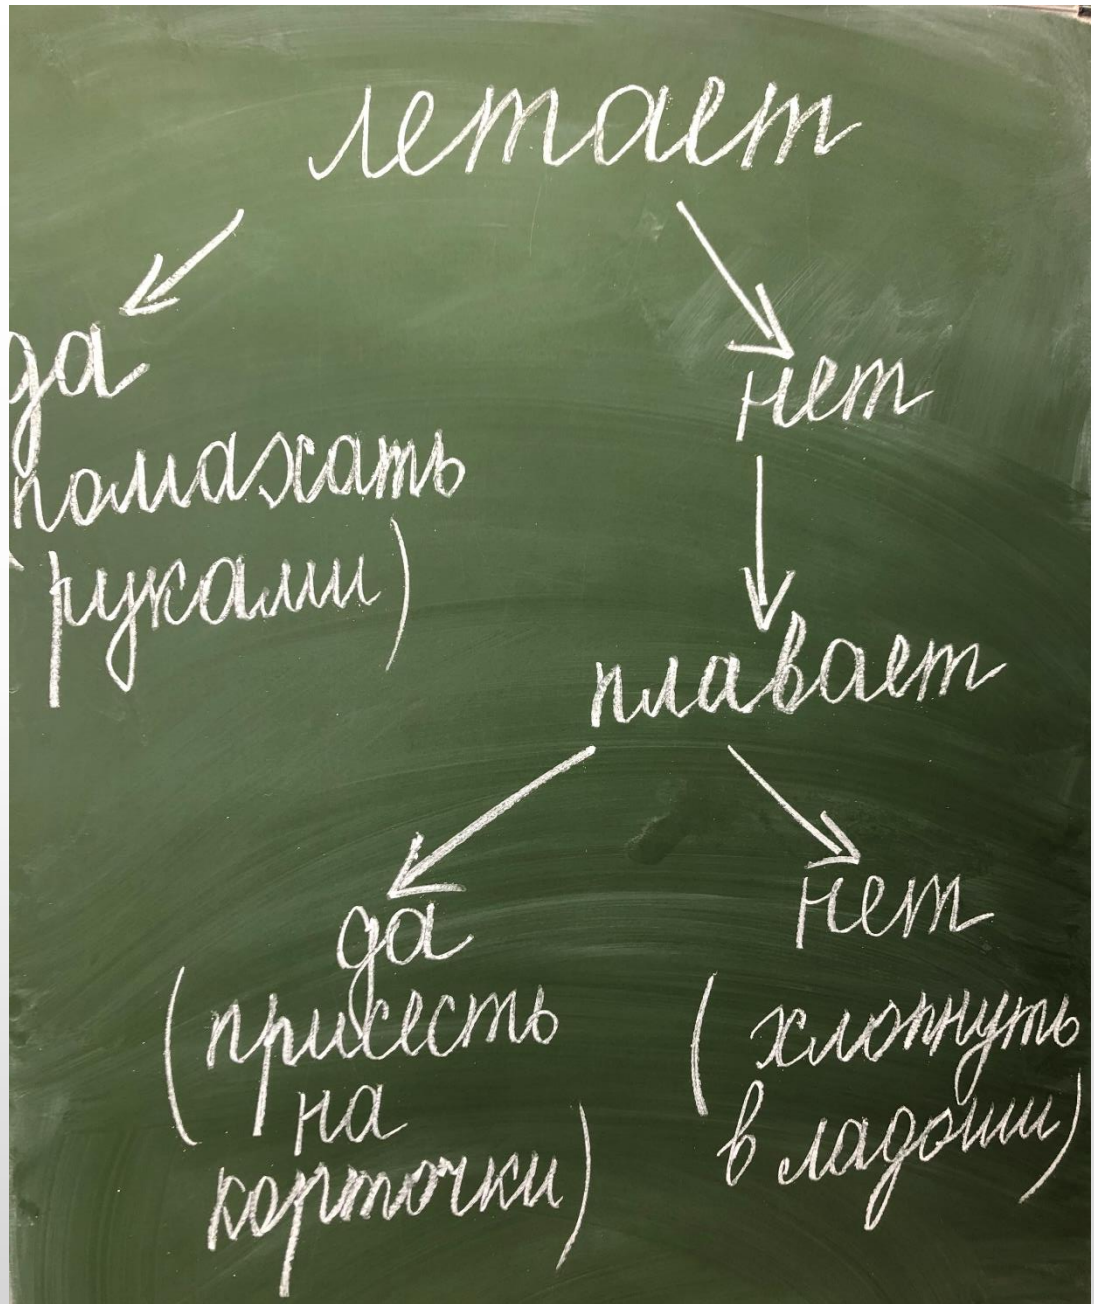 летает
да
нет
помахать
(руками)
плавает
да
нет
(присесть
на
корточки)
(хлопнуть
в ладоши)